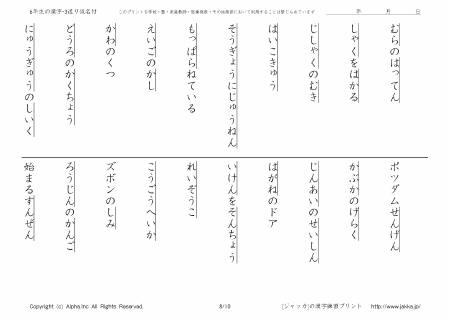 6年生の漢字-3送り仮名付
このプリントを学校・塾・家庭教師・医療機関・その他施設において利用することは禁じられています
年 月 日
むらのはってん
しゃくをはかる
じしゃくのむき
はいこきゅう
そうぎょうにじゅうねん
もっぱらねている
えいごのかし
かわのくつ
どうろのかくちょう
にゅうぎゅうのしいく
ポツダムせんげん
かぶかのげらく
じんあいのせいしん
はがねのドア
いけんをそんちょう
れいぞうこ
こうごうへいか
ズボンのしみ
ろうじんのかんご
始まるすんぜん
Copyright (c) Alpha.Inc All Rights Reserved.
8/10
[ジャッカ]の漢字練習プリント http://www.jakka.jp/